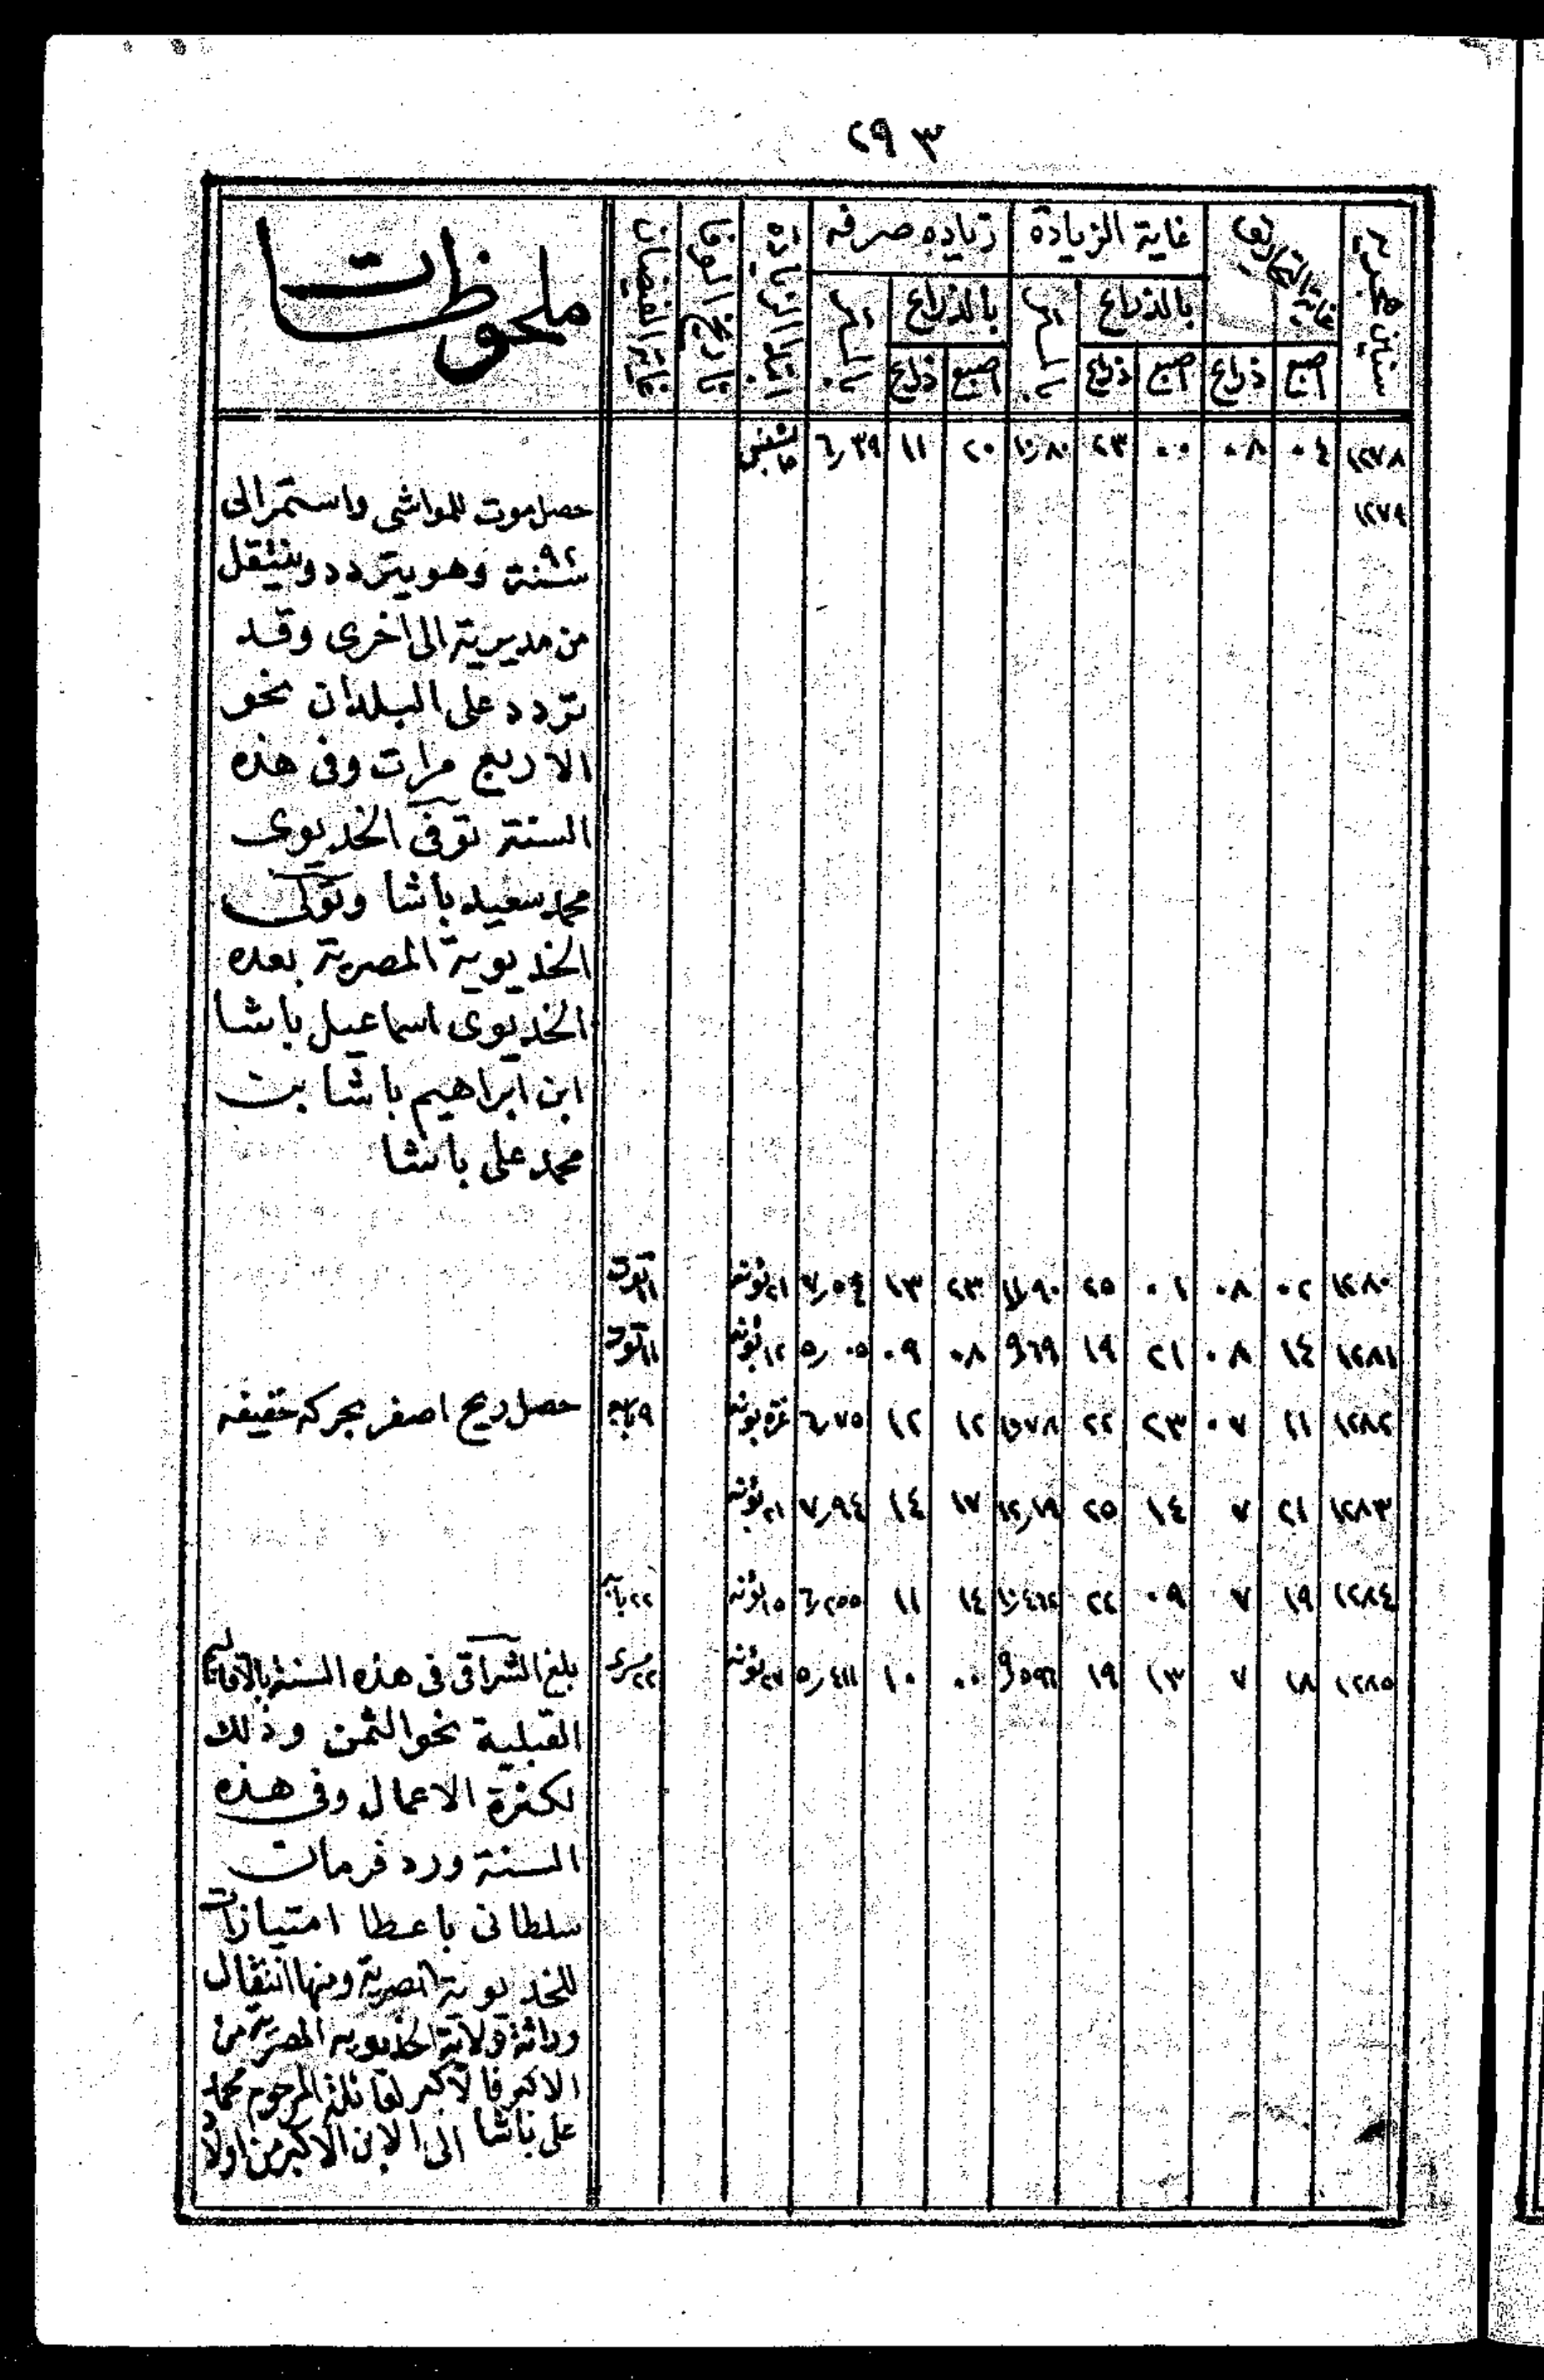 ٢٩٣
سنين هجرية
غاية التحاريق
غاية الزيادة
زياده صرفه
ابتدا الزيادة
تاريخ الوفا
غاية الفيضان
ملحوظات
بالذراع
بالمتر
بالذراع
بالمتر
اصبع ذراع اصبع ذراع اصبع ذراع
١٢٧٨ ٠٤ ٠٨ ٠٠ ٢٣ ٢٠ ١١ ٦٫٣٩
١٢٧٩ حصل موت للمواشى واستمر الى
سنة ٩٢ وهو يتردد وينتقل
من مديرية الى اخرى وقد
تردد على البلدان نحو
الاربع مرات وفى هذه
السنة توفى الخديوى
محمد سعيد باشا وتولى
الخديوية المصرية بعده
الخديوى اسماعيل باشا
ابن ابراهيم باشا بن
محمد على باشا
١٢٨٠ ٠٢ ٠٨ ٠١ ٢٥ ١١٫٩٠ ٢٣ ١٣ ٧٫٠٤ ٢١بؤنه
١٢٨١ ١٤ ٠٨ ٢١ ١٩ ٩٫٦٩ ٠٨ ٠٩ ٥٫٠٥ ١٢بؤنه ١١توت
١٢٨٢ ١١ ٠٧ ٢٣ ٢٢ ١٠٫٧٨ ١٢ ١٢ ٦٫٧٥ غره بؤنه ٩بابه حصل ريح اصفر بحركه خفيفه
١٢٨٣ ٢١ ٧ ١٤ ٢٥ ١٢٫١٩ ١٧ ١٤ ٧٫٩٤ ٢١بؤنه
١٢٨٤ ١٩ ٧ ٠٩ ٢٢ ١٠٫٤٦٢ ١٤ ١١ ٦٫٢٥٥ ١٥بؤنه ٢٢بابه
١٢٨٥ ١٨ ٧ ١٣ ١٩ ٩٫٥٩٦ ٠٠ ١٠ ٥٫٤١١ ٢٧بؤنه ٢٢مسرى بلغ الشراقى فى هذه السنة بالاقاليم
القبلية نحو الثمن وذلك
لكثرة الاعمال وفى هذه
السنة ورد فرمان
سلطانى باعطا امتيازات
للخديوية المصرية ومنها انتقال
وراثة ولاية الخديويه المصرية من
الاكبر فالاكبر لعائلة المرحوم محمد
على باشا الى الابن الاكبر من اولاد